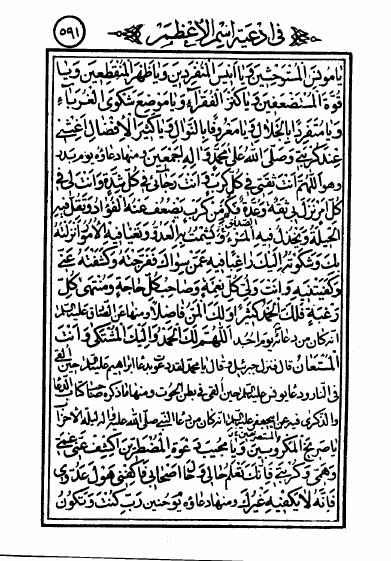 في ادعية اسم الاعظم
٥٩١
يا مونس المستوحشين ويا انيس المنفردين ويا ظهر المنقطعين ويا
قوة المستضعفين ويا كنز الفقراء ويا موضع شكوى الغرباء
ويا متفردا بالجلال ويا معروفا بالنوال ويا كثير الافضال اغثني
عند كربتي وصلى الله على محمد واله اجمعين ومنها دعاؤه يوم بدر
وهو اللهم انت ثقتي في كل كرب وانت رجائي في كل شدة وانت لي في
كل امر نزل بي ثقة وعدة وكم من كرب يضعف عنه الفؤاد وتقل فيه
الحيلة ويخذل فيه الصديق ويشمت به العدو وتعييني فيه الامور انزلته
بك وشكوته اليك راغبا فيه عمن سواك ففرجته وكشفته عني
وكفيتنيه وانت ولي كل نعمة وصاحب كل حاجة ومنتهى كل
رغبة فلك الحمد كثيرا ولك المن فاضلا ومنها عن الصادق
انه كان من دعائه يوم احد اللهم لك الحمد واليك المشتكى وانت
المستعان قال فنزل جبرئيل وقال يا محمد لقد دعوت بدعا ابراهيم حين القي
في النار ودعا يونس حين القي في بطن الحوت ومنها ما ذكره صاحب كتاب الدعا
والذكرى فيه عن ابي جعفر انه كان من دعا النبي صلى الله عليه واله ليلة الاحزاب
يا صريخ المكروبين ويا مجيب دعوة المضطرين اكشف عني غمي
وهمي وكربتي فانك تعلم حالي وحال اصحابي فاكفني هول عدوي
فانه لا يكفينيه غيرك ومنها دعاؤه يوم حنين رب كنت وتكون